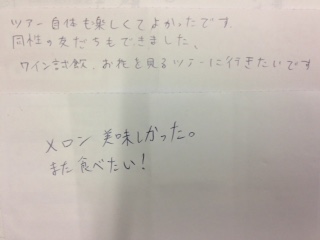 ツアー自体も楽しくてよかったです.
同性の友だちもできました。
ワイン試飲、お花を見るツアーに行きたいです
メロン美味しかった。
また食べたい!